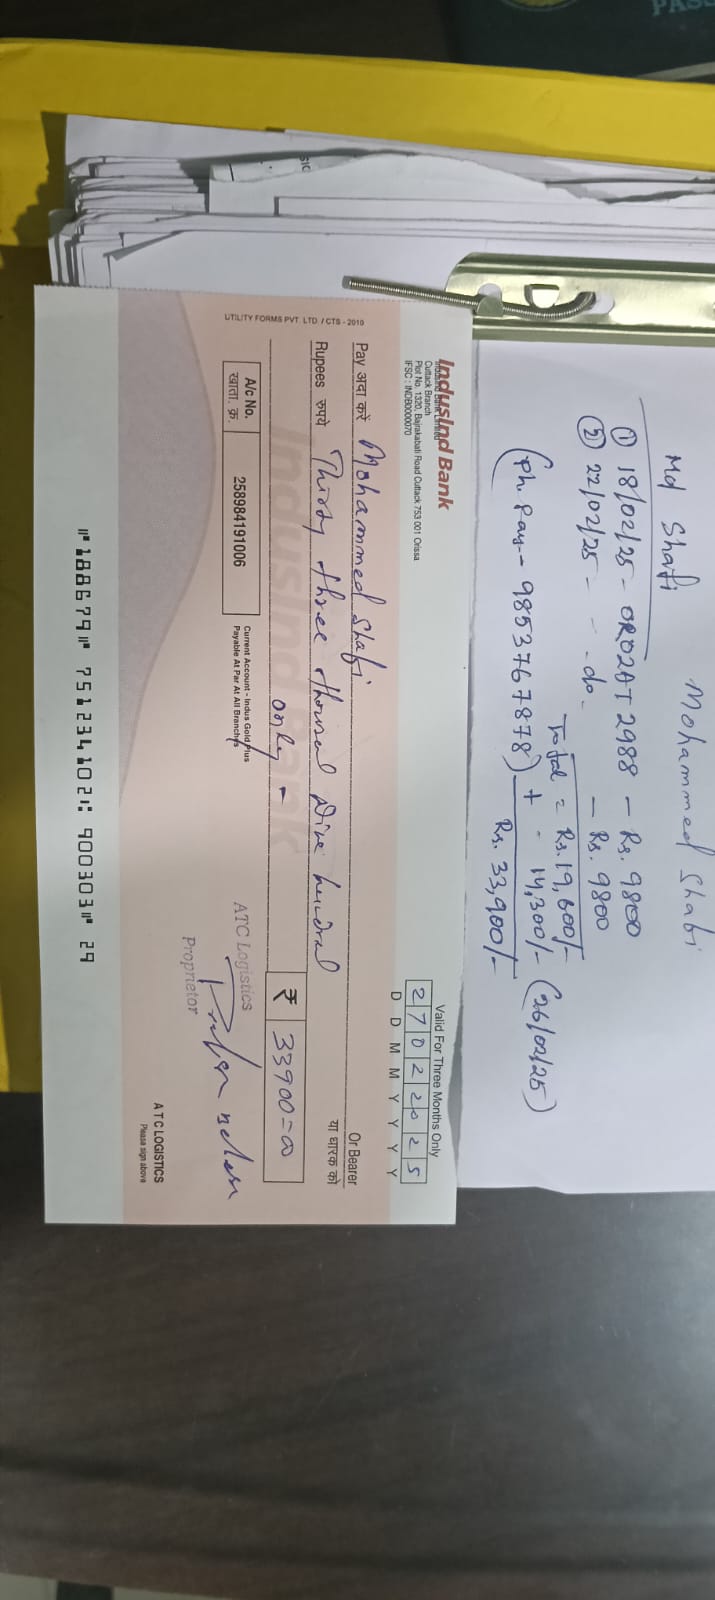 PASS
Mohammed Shabi
Md Shafi
① 18/02/25 - OR02AT 2988 - Rs. 9800
② 22/02/25 - - do - - Rs. 9800
Total = Rs. 19,600/-
+ - 14,300/- (26/02/25)
(Ph. Pay - 9853767878) Rs. 33,900/-
IndusInd Bank
IndusInd Bank Limited
Cuttack Branch
Plot No. 1320, Bajrakabati Road Cuttack 753 001 Orissa
IFSC : INDB0000070
Valid For Three Months Only
27022025
D D M M Y Y Y Y
Pay अदा करें Mohammed Shabi Or Bearer
या धारक को
Rupees रुपये Thirty three thousal Nine hundral
only - ₹ 33900=00
A/c No.
खाता. क्र. 258984191006
Current Account - Indus Gold Plus
Payable At Par At All Branches
IndusInd Bank
ATC Logistics
Proprietor
ATC LOGISTICS
Please sign above
UTILITY FORMS PVT. LTD. / CTS - 2010
⑈188679⑈ 751234102⑆ 900303⑈ 29